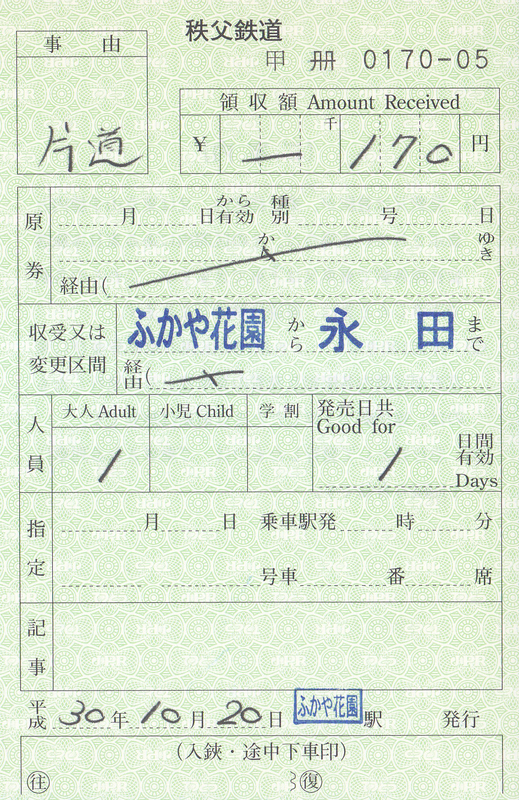 秩父鉄道
事由
甲 冊 0170-05
片道
領収額 Amount Received
千
¥ 一 170 円
原券
月 日から有効 種別 号 日
から ゆき
経由(
収受又は変更区間
ふかや花園 から 永田 まで
経由(
人員
大人 Adult 小児 Child 学割 発売日共
Good for
1 1 日間有効
Days
指定
月 日 乗車駅発 時 分
号車 番 席
記事
平成 30 年 10 月 20 日 ふかや花園 駅 発行
(入鋏・途中下車印)
往 復